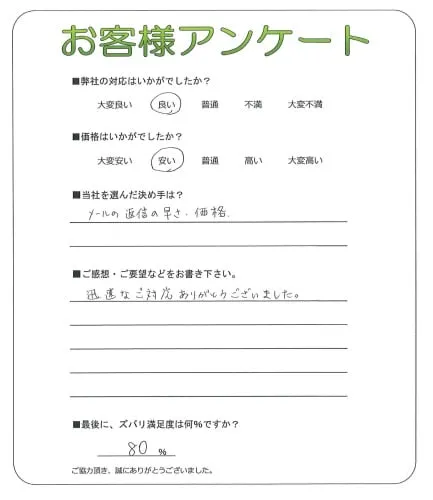 お客様アンケート
■弊社の対応はいかがでしたか？
大変良い 良い 普通 不満 大変不満
■価格はいかがでしたか？
大変安い 安い 普通 高い 大変高い
■当社を選んだ決め手は？
メールの返信の早さ・価格.
■ご感想・ご要望などをお書き下さい。
迅速なご対応ありがとうございました。
■最後に、ズバリ満足度は何％ですか？
80 ％
ご協力頂き、誠にありがとうございました。